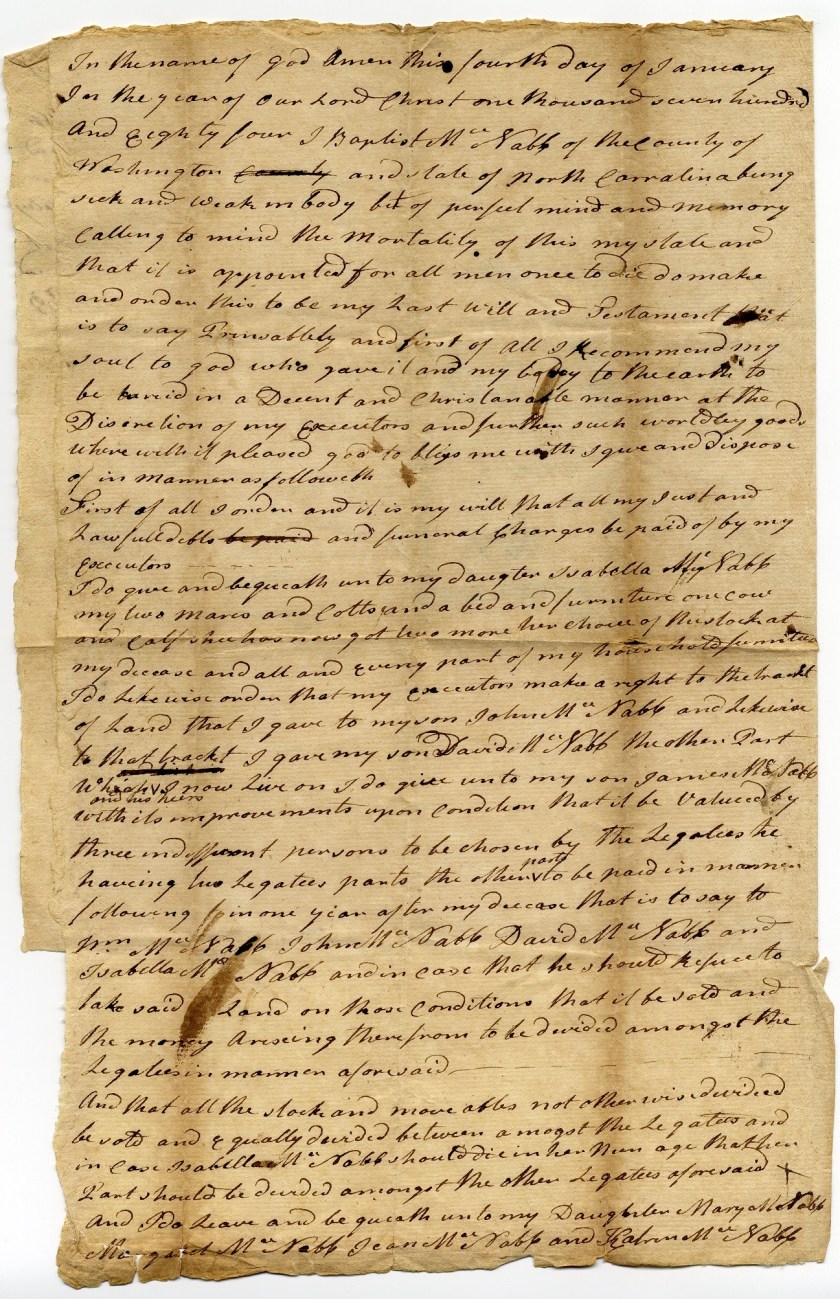 In the name of god Amen this fourth day of January
In the year of our Lord Christ one thousand seven hundred
And Eighty four I Baptist Mc Nabb of the County of
Washington County and state of North Carralina being
sick and weak in body but of perfect mind and memory
Calling to mind the mortality of this my state and
that it is appointed for all men once to die do make
and order this to be my Last Will and Testament that
is to say Prinsablely and first of all I Recommend my
soul to god who gave it and my body to the earth to
be buried in a Decent and Christan manner at the
Discretion of my Executors and further such worldley goods
where with it pleased god to bliss me with I give and dispose
of in manner as followeth
First of all I order and it is my will that all my Just and
Lawfull debts be paid and funeral Charges be paid of by my
Executors
I do give and bequeath unto my daugter Isabella Mc Nabb
my two mares and Colts and a bed and furniture one cow
and Calf shee has now got two more her choice of the stock at
my decease and all and every part of my household furniture
I do Likewise order that my executors make a right to the tract
of Land that I gave to my son John Mc Nabb and Likewise
to that tract I gave my son David Mc Nabb the other Part
Which I now Live on I do give unto my son James Mc Nabb
and his heirs
with its improvements upon Condition that it be Valued by
three indifferent persons to be chosen by the Legatees he
haveing two Legatees parts the other parts to be paid in manner
following in one year after my decease that is to say to
Wm Mc Nabb John Mc Nabb David Mc Nabb and
Isabella Mc Nabb and in case that he should Refuse to
take said Land on those Conditions that it be sold and
the money Ariseing therefrom to be devided amongst the
Legatees in manner aforesaid
And that all the stock and move ables not otherwise devided
be sold and Equally devided between amogst the Legatees and
in Case Isabella Mc Nabb should die in her Nun age that her
Part should be devided amongst the other Legatees aforesaid
And I do Leave and bequeath unto my Daughter Mary Mc Nabb
Margaret Mc Nabb Jean Mc Nabb and Katren Mc Nabb